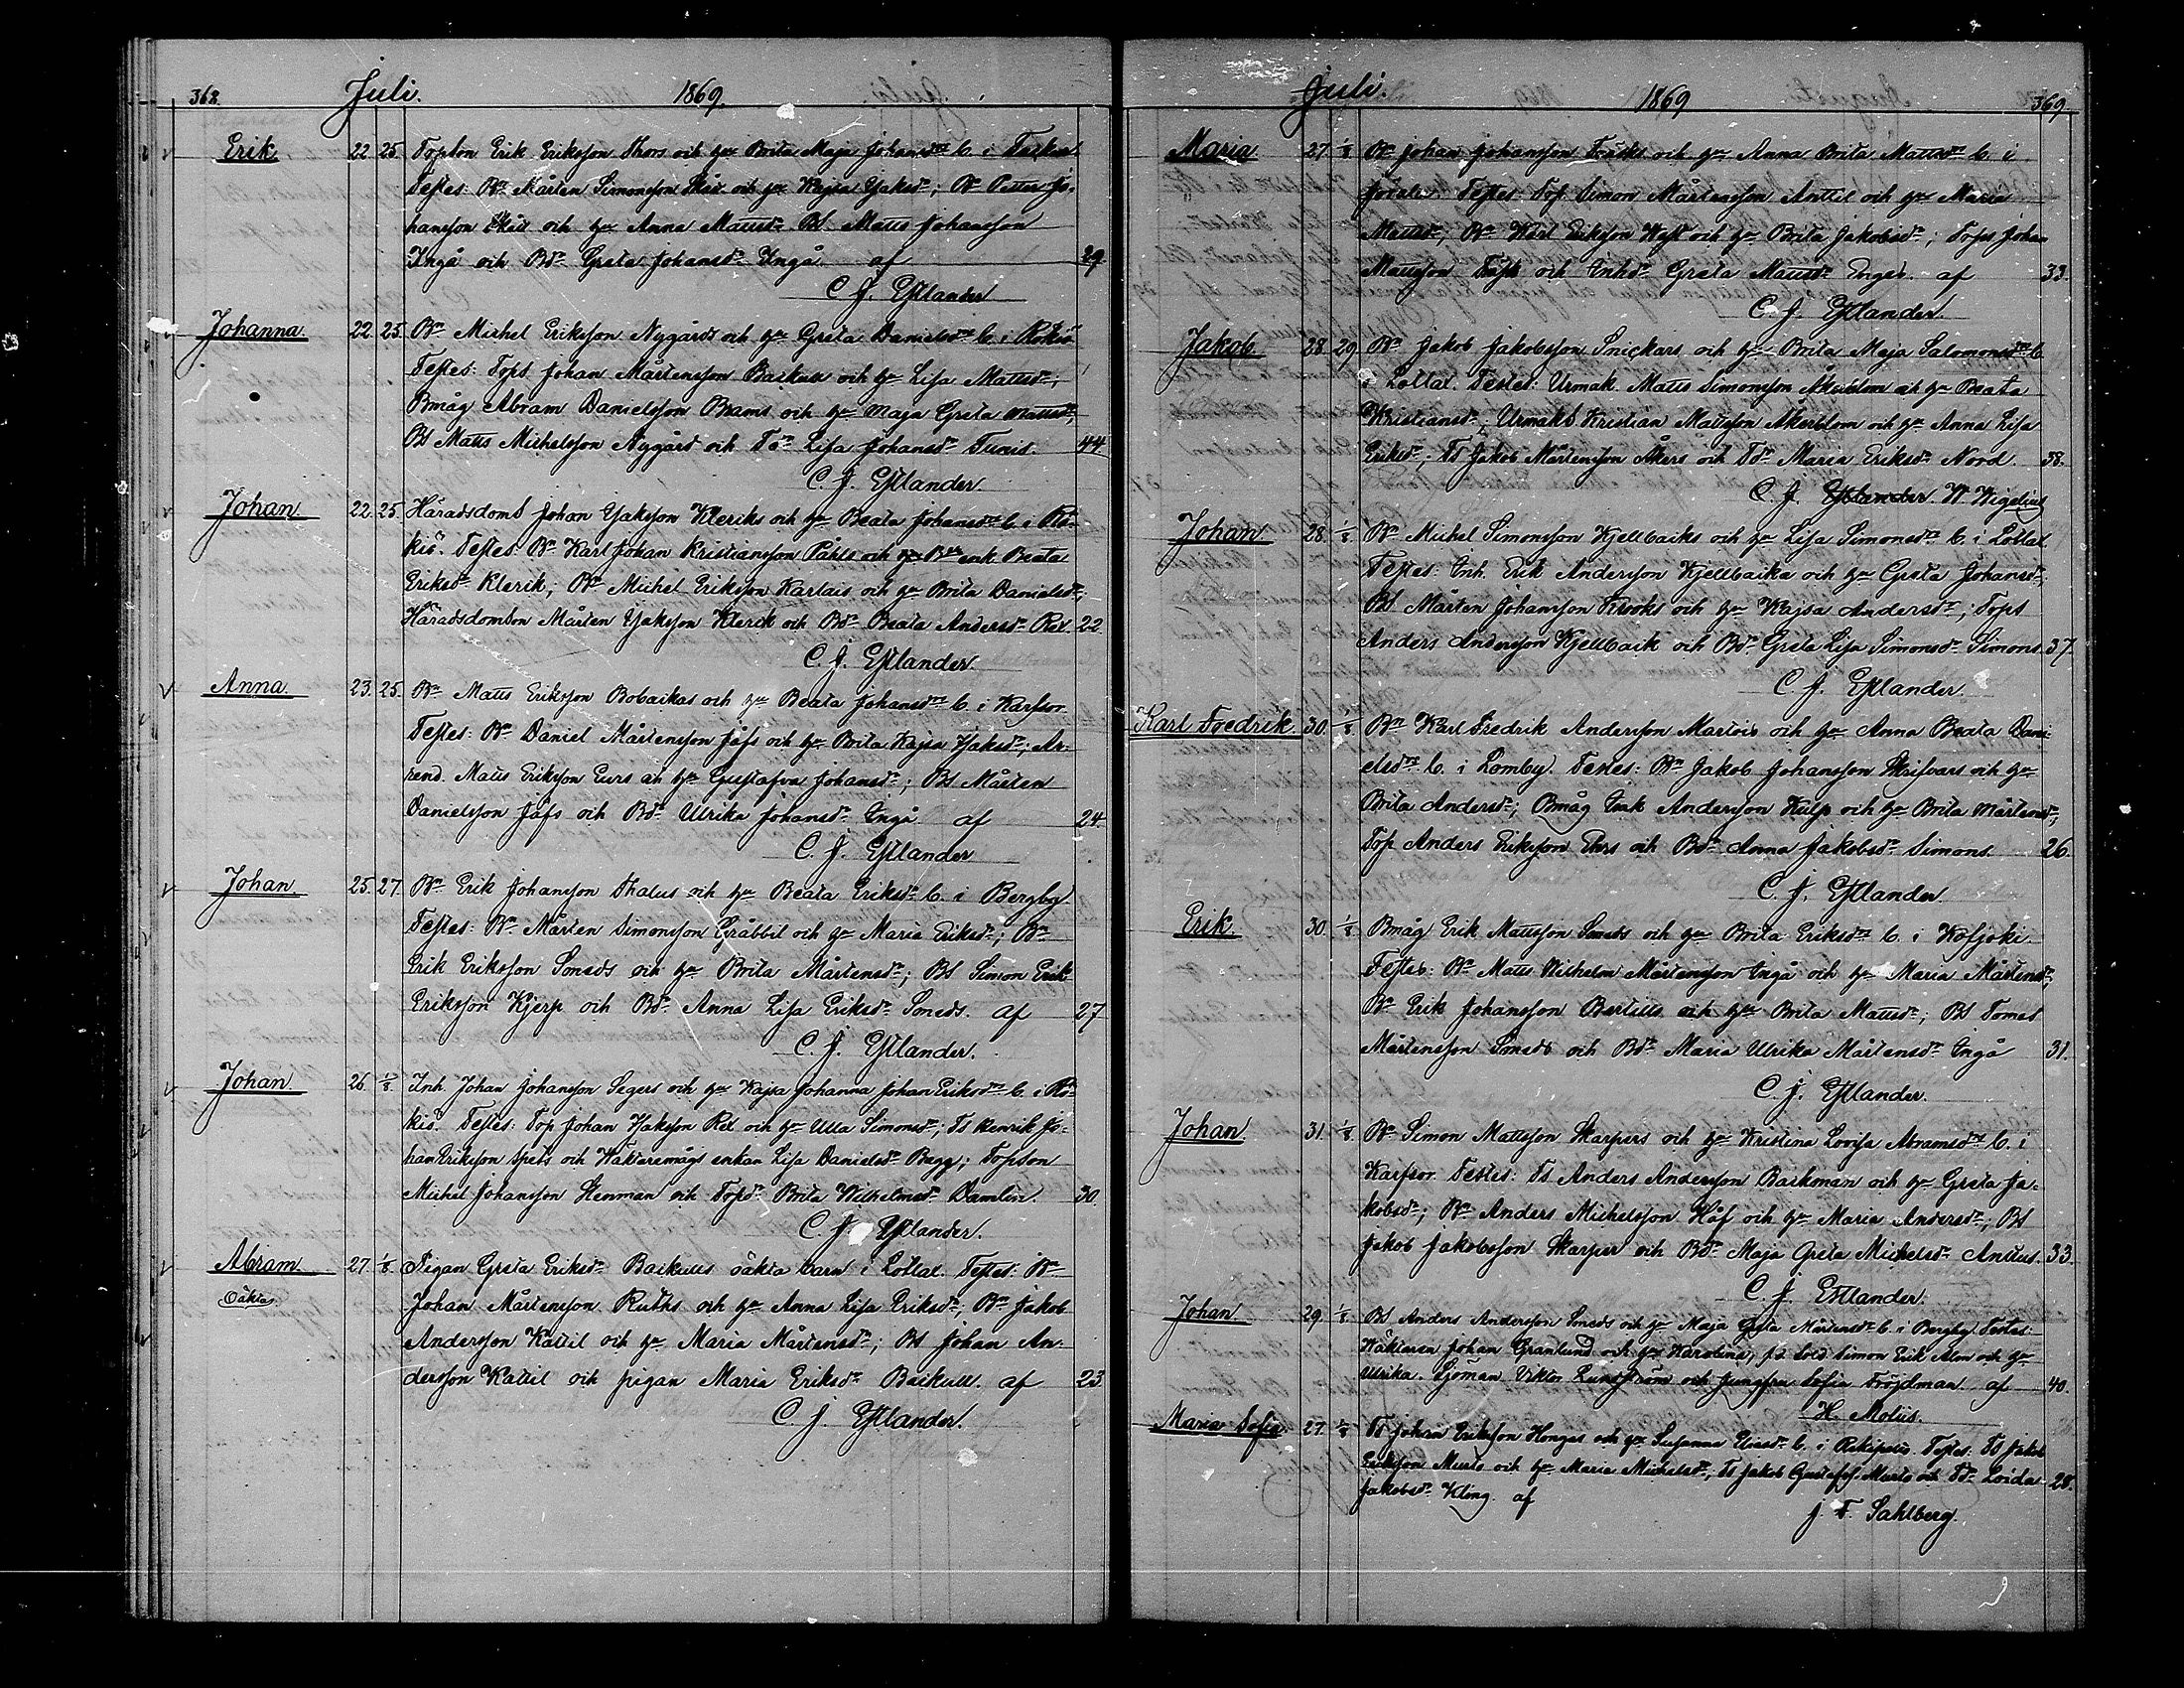 368. Juli. 1869.
Erik 22 25 Topson Erik Eriksson Thors och h:u Brita Maja Johansd:r b. i
Testes: B:n Mårten Simonsson Skåt och h:u Kajsa Isaksd:r; B:n Petter Jo-
hansson Skåt och h:u Anna Mattsd:r Bs. Matts Johansson
Ingå och Bd:r Greta Johansd:r Ingå. af 29.
C. J. Estlander
Johanna. 22. 25. B:n Michel Eriksson Nygårds och h:u Greta Danielsd:r b. i Rökiö
Testes: Tops Johan Mårtensson Backull och h:u Lisa Mattsd:r;
Bmåg Abram Danielsson Brams och h:u Maja Greta Mattsd:r;
Bs Matts Michelsson Nygård och Td:r Lisa Johansd:r Tunis. 44
C. J. Estlander.
Johan. 22. 25. Häradsdoms Johan Isaksson Kleriks och h:u Beata Johansd:r b. i Rö-
kiö. Testes B:n Karl Johan Kristiansson Påhls och enk Beata
Eriksd:r Klerik; B:n Michel Eriksson Karlais och h:u Brita Danielsd:r;
Häradsdomson Mårten Isaksson Klerik och Bd:r Beata Andersd:r Rex 22
C. J. Estlander.
Anna. 23. 25. B:n Matts Eriksson Bobackas och h:u Beata Johansd:r b. i Karfsor
Testes: B:n Daniel Mårtensson Jåfs och h:u Brita Kajsa Isaksd:r; Ar-
rend. Matts Eriksson Eurs och h:u Gustafva Johansd:r; Bs Mårten
Danielsson Jåfs och Bd:r Ulrika Johansd:r Ingå af 24.
C. J. Estlander
Johan. 25. 27. B:n Erik Johansson Thalus och h:u Beata Eriksd:r b. i Bergby
Testes: B:n Mårten Simonsson Gräbbil och h:u Maria Eriksd:r; B:n
Erik Eriksson Soneds och h:u Brita Mårtensd:r; Bs Simon Erik
Eriksson Kjerp och Bd:r Anna Lisa Eriksd:r Soneds. af 27
C. J. Estlander.
Johan. 26. 1/8. Inh. Johan Johansson Segers och h:u Kajsa Johanna Johan Eriksd:r b. i Rö-
kiö. Testes: Top Johan Isaksson Rex och h:u Ulla Simonsd:r; Ts Henrik Jo-
han Eriksson Spets och Waktaremågs enkan Lisa Danielsd:r Bagg; Topson
Michel Johansson Stenman och Topd:r Brita Wilhelmsd:r Damlin. 30.
C. J. Estlander.
Abram. 27. 1/8. Pigan Greta Eriksd:r Backulls oäkta barn i Lollax. Testes: B:n
Oäkta. Johan Mårtensson Ruths och h:u Anna Lisa Eriksd:r; B:n Jakob
Andersson Kattil och h:u Maria Mårtensd:r; Bs Johan An-
dersson Kattil och pigan Maria Eriksd:r Backull. af 23
C. J. Estlander.
Juli. 1869 369.
Maria 27. 1/8 B:n Johan Johansson Träsks och h:u Anna Brita Mattsd:r b. i
Testes: Top Simon Mårtensson Anttil och h:u Maria
Mattsd:r; B:n Karl Eriksson Wast och h:u Brita Jakobsd:r; Tops Johan
Mattsson Träsk och Inhd:r Greta Mattsd:r Enges. af 33.
C. J. Estlander
Jakob 28. 29 B:n Jakob Jakobsson Snickars och h:u Brita Maja Salomonsd:r b
i Lollax. Testes: Urmak. Matts Simonsson Åkerblom och h:u Beata
Kristiansd:r; Urmaks Kristian Mattsson Åkerblom och h:u Anna Lisa
Eriksd:r; Ts Jakob Mårtensson Åkers och Td:r Maria Eriksd:r Nord. 38.
C. J. Estlander. W Wigelius
Johan 28. 1/8 B:n Michel Simonsson Kjellbacks och h:u Lisa Simonsd:r b. i Lollax
Testes: Inh. Erik Andersson Kjellbacka och h:u Greta Johansd:r;
Bs Mårten Johansson Krooks och h:u Kajsa Andersd:r; Tops
Anders Andersson Kjellback och Bd:r Greta Lisa Simonsd:r Simons. 37.
C. J. Estlander.
Karl Fredrik. 30. 1/8 B:n Karl Fredrik Andersson Martois och h:u Anna Beata Dani-
elsd:r b. i Lomby. Testes: B:n Jakob Johansson Skrifvars och h:u
Brita Andersd:r; Bmåg Isak Andersson Kulp och h:u Brita Mårtensd:r;
Top Anders Eriksson Ehrs och Bd:r Anna Jakobsd:r Simons. 26.
C. J. Estlander
Erik. 30. 1/8 Bmåg Erik Mattsson Smeds och h:u Brita Eriksd:r b. i Kofjoki
Testes: B:n Matts Wilhelm Mårtensson Ingå och h:u Maria Mårtensd:r;
B:n Erik Johansson Bertills och h:u Brita Mattsd:r; Bs Tomas
Mårtensson Smeds och Bd:r Maria Ulrika Mårtensd:r Ingå 31.
C. J. Estlander.
Johan 31. 1/8. B:n Simon Mattsson Skarpers och h:u Kristina Lovisa Abramsd:r b. i
Karfsor Testes: Ts Anders Andersson Backman och h:u Greta Ja-
kobsd:r; B:n Anders Michelsson Håf och h:u Maria Andersd:r; Bs
Jakob Jakobsson Skarper och Bd:r Maja Greta Michelsd:r Antus. 33.
C. J. Estlander.
Johan 29. 1/8 Bs Anders Andersson Smeds och h:u Maja Greta Mårtensd:r b. i Bergby Testes:
Waktaren Johan Granlund och h:u Karolina; f.d. Sold Simon Erik Alon och h:u
Ulrika. Sjöman Viktor Lundström och Jungfru Sofia Fröjdman af 40.
H. Moliis.
Maria Sofia. 27. 1/8 Ts Johan Eriksson Honga och h:u Susanna Eliasd:r b. i Testes. Ts Jakob
Eriksson Murto och h:u Maria Michelsd:r; Ts Jakob Gustafsf. Murto och Td:r Lovisa 28.
Jakobsd:r Kling. af
J. F. Sahlberg.